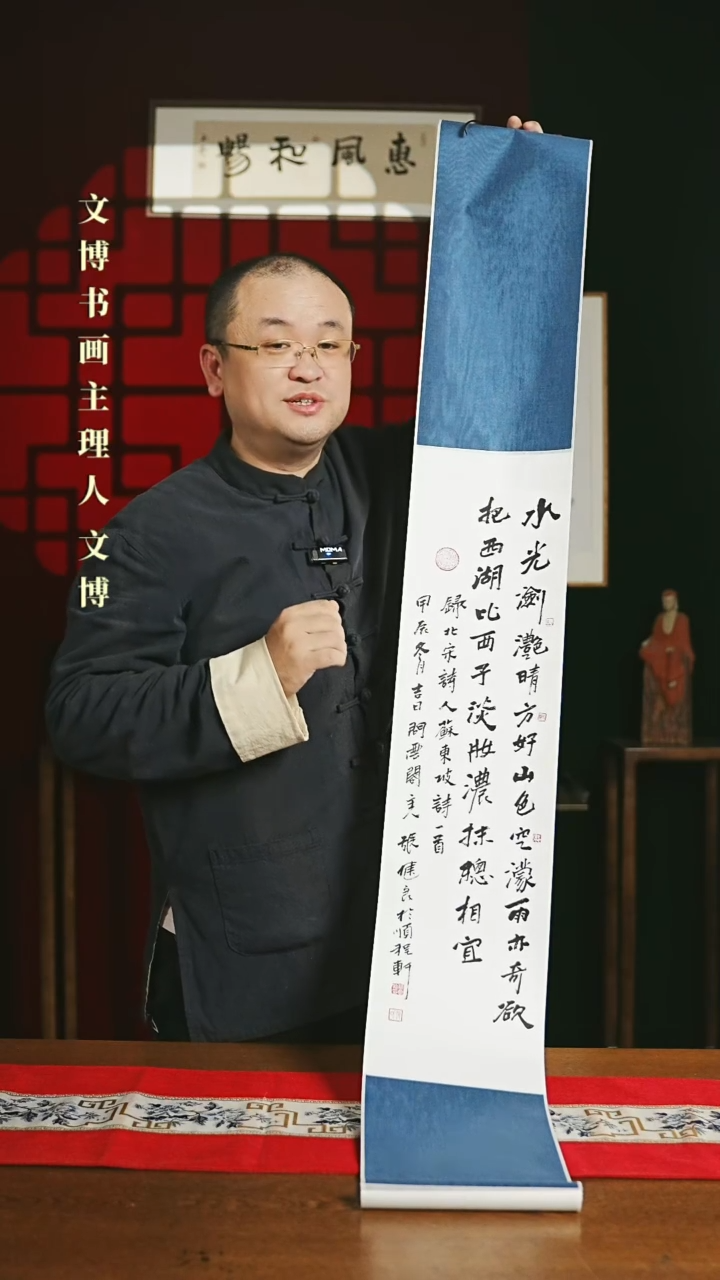 惠風和暢
文博书画主理人文博
水光瀲灧晴方好山色空濛雨亦奇欲
把西湖比西子淡妝濃抹總相宜
録北宋詩人蘇東坡詩一首
甲辰冬月吉日雲閣主人張健良於順程軒
MOMA